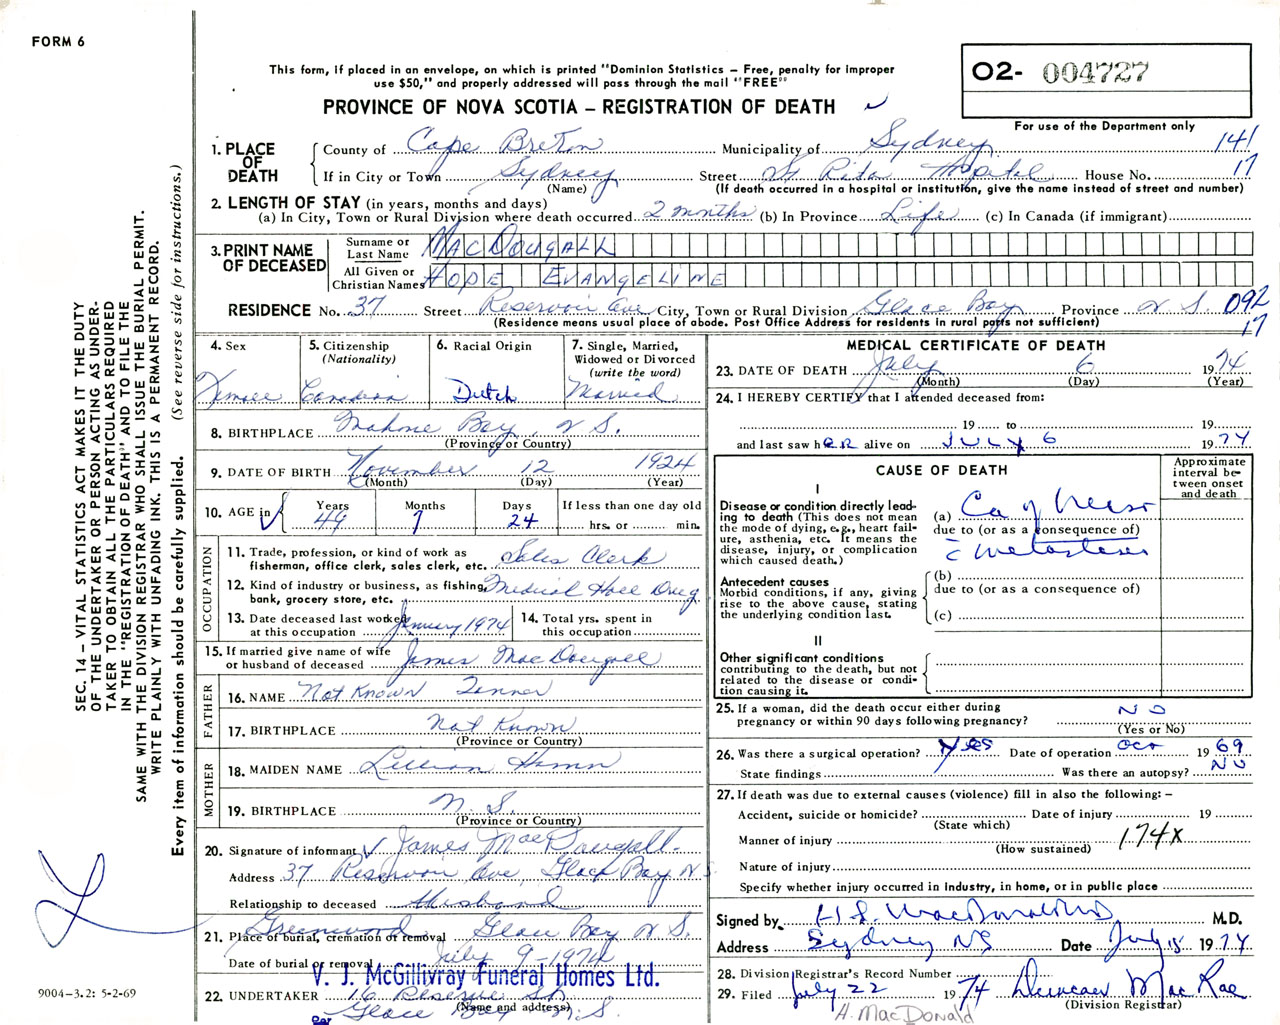 FORM 6
This form, if placed in an envelope, on which is printed "Dominion Statistics – Free, penalty for improper
use $50," and properly addressed will pass through the mail "FREE"
PROVINCE OF NOVA SCOTIA – REGISTRATION OF DEATH
02- 004727
For use of the Department only
141
17
1. PLACE OF DEATH
County of Cape Breton Municipality of Sydney
If in City or Town Sydney Street St Rita Hospital House No.
(Name) (If death occurred in a hospital or institution, give the name instead of street and number)
2. LENGTH OF STAY (in years, months and days)
(a) In City, Town or Rural Division where death occurred 2 months (b) In Province Life (c) In Canada (if immigrant)
3. PRINT NAME OF DECEASED
Surname or Last Name MACDOUGALL
All Given or Christian Names HOPE EVANGELINE
RESIDENCE No. 37 Street Reservoir Ave City, Town or Rural Division Glace Bay Province N.S. 092
17
(Residence means usual place of abode. Post Office Address for residents in rural parts not sufficient)
4. Sex
Female
5. Citizenship
(Nationality)
Canadian
6. Racial Origin
Dutch
7. Single, Married,
Widowed or Divorced
(write the word)
Married
8. BIRTHPLACE Mahone Bay, N.S.
(Province or Country)
9. DATE OF BIRTH November 12 1924
(Month) (Day) (Year)
10. AGE in
Years Months Days If less than one day old
49 7 24 hrs. or min.
OCCUPATION
11. Trade, profession, or kind of work as
fisherman, office clerk, sales clerk, etc. Sales Clerk
12. Kind of industry or business, as fishing,
bank, grocery store, etc. Medical Hall Drug
13. Date deceased last worked
at this occupation January 1974
14. Total yrs. spent in
this occupation
15. If married give name of wife
or husband of deceased James MacDougall
FATHER
16. NAME Not Known Tanner
17. BIRTHPLACE Not Known
(Province or Country)
MOTHER
18. MAIDEN NAME Lillian
19. BIRTHPLACE N.S.
(Province or Country)
20. Signature of informant James MacDougall
Address 37 Reservoir Ave, Glace Bay N.S.
Relationship to deceased Husband
21. Place of burial, cremation or removal Greenwood Glace Bay N.S.
Date of burial or removal July 9-1974
V. J. McGillivray Funeral Homes Ltd.
22. UNDERTAKER 16 Reserve St.
(Name and address)
Glace Bay N.S.
MEDICAL CERTIFICATE OF DEATH
23. DATE OF DEATH July 6 1974
(Month) (Day) (Year)
24. I HEREBY CERTIFY that I attended deceased from:
19 to 19
and last saw hER alive on JULY 6 1974
CAUSE OF DEATH
Approximate interval between onset and death
I
Disease or condition directly leading to death (This does not mean the mode of dying, e.g., heart failure, asthenia, etc. It means the disease, injury, or complication which caused death.)
(a) Ca of
due to (or as a consequence of)
c̄ metastases
Antecedent causes
Morbid conditions, if any, giving rise to the above cause, stating the underlying condition last.
(b)
due to (or as a consequence of)
(c)
II
Other significant conditions
contributing to the death, but not related to the disease or condition causing it.
25. If a woman, did the death occur either during
pregnancy or within 90 days following pregnancy? NO
(Yes or No)
26. Was there a surgical operation? Yes Date of operation Oct 1969
State findings Was there an autopsy? NO
27. If death was due to external causes (violence) fill in also the following: –
Accident, suicide or homicide? Date of injury 19
(State which)
Manner of injury 174X
(How sustained)
Nature of injury
Specify whether injury occurred in industry, in home, or in public place
Signed by H.L. MacDonald M.D.
Address Sydney NS Date July 15 1974
28. Division Registrar's Record Number
29. Filed July 22 1974 Duncan MacRae
(Division Registrar)
A. MacDonald
SEC. 14 – VITAL STATISTICS ACT MAKES IT THE DUTY
OF THE UNDERTAKER OR PERSON ACTING AS UNDER-
TAKER TO OBTAIN ALL THE PARTICULARS REQUIRED
IN THE "REGISTRATION OF DEATH" AND TO FILE THE
SAME WITH THE DIVISION REGISTRAR WHO SHALL ISSUE THE BURIAL PERMIT.
WRITE PLAINLY WITH UNFADING INK. THIS IS A PERMANENT RECORD.
Every item of information should be carefully supplied. (See reverse side for instructions.)
9004-3.2: 5-2-69